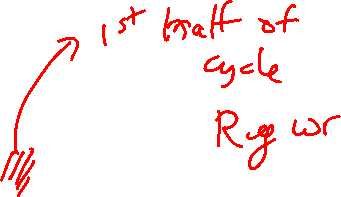 1st half of
cycle
Reg wr